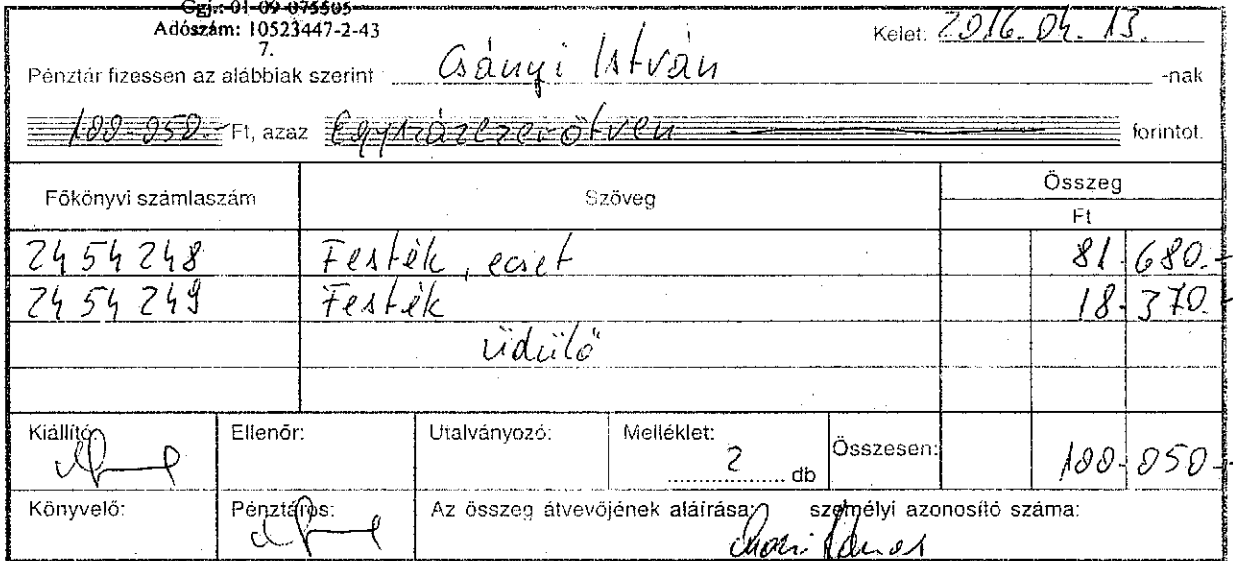 Cgj.: 01-09-075505
Adószám: 10523447-2-43
7.
Kelet: 2016. 04. 13.
Pénztár fizessen az alábbiak szerint Csányi István -nak
100-050.- Ft, azaz Egyszázezerötven forintot.
Főkönyvi számlaszám Szöveg Összeg
Ft
2454248 Festék, ecset 81.680.-
2454249 Festék 18.370.-
üdülő
Kiállító: Ellenőr: Utalványozó: Melléklet: 2 db Összesen: 100-050-
Könyvelő: Pénztáros: Az összeg átvevőjének aláírása: személyi azonosító száma: